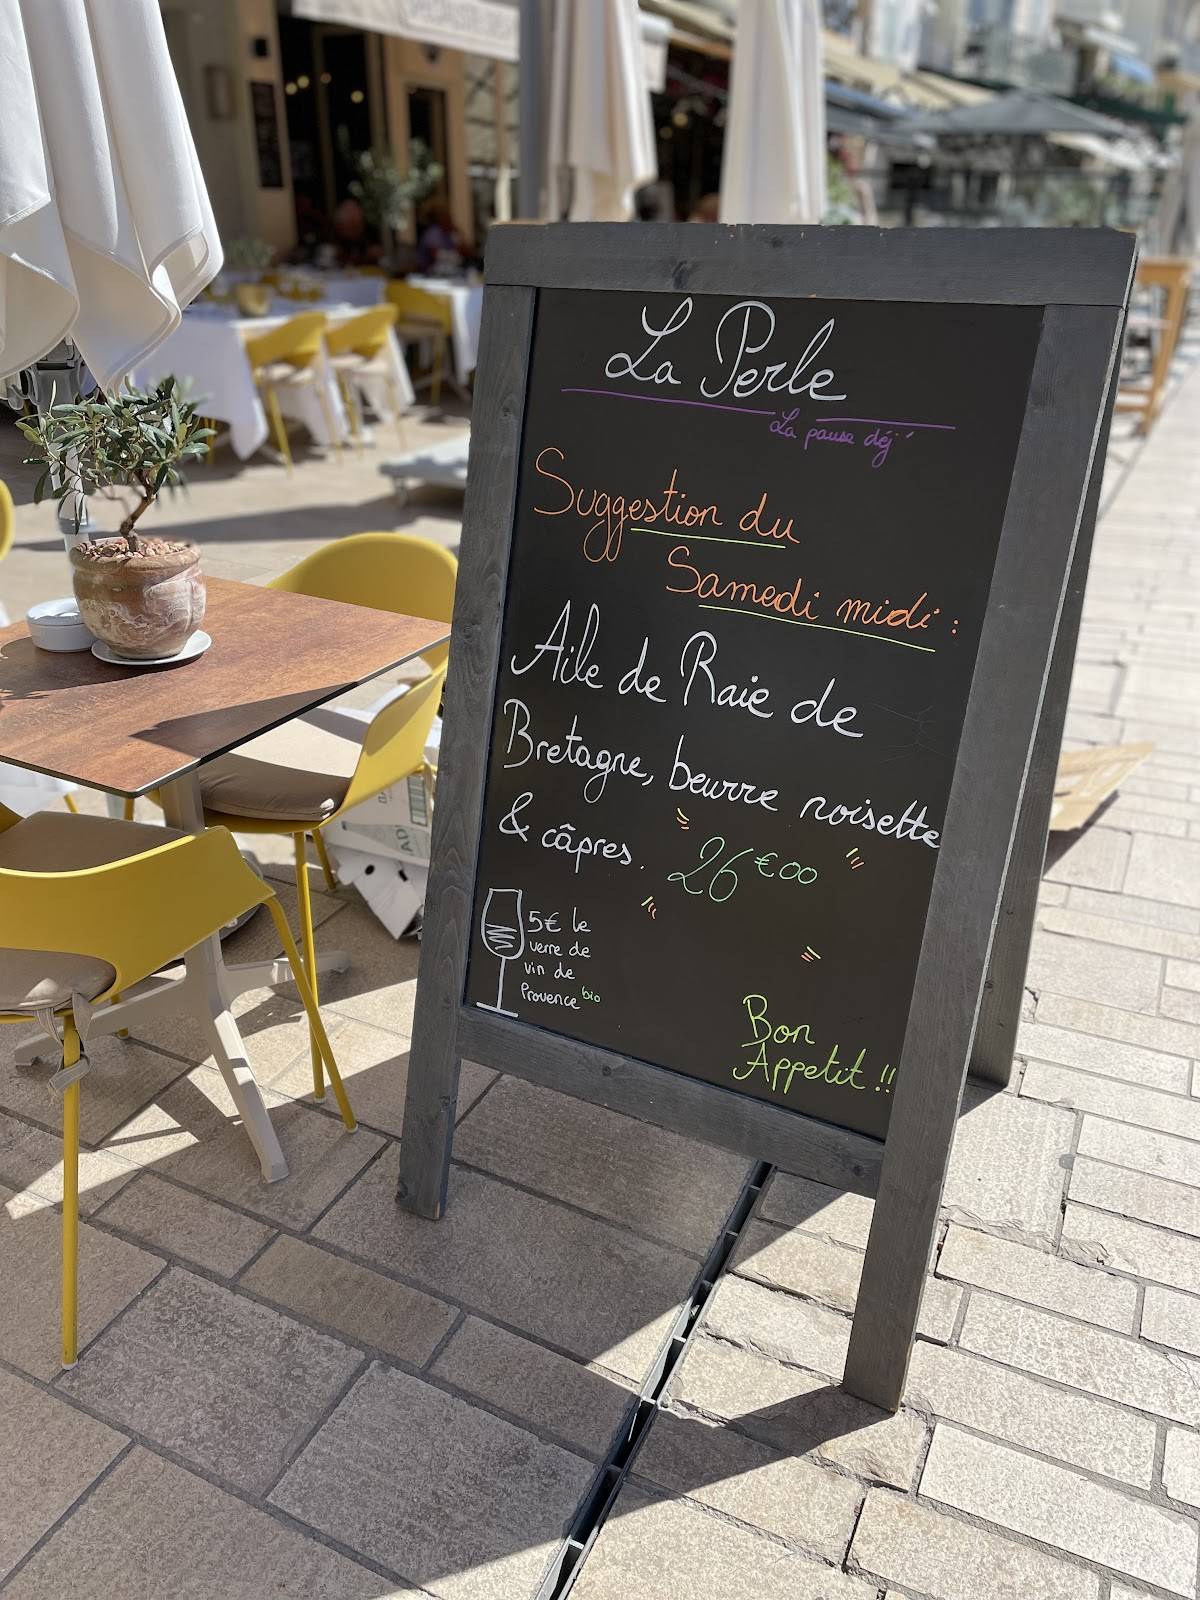 La Perle
La pause déj'
Suggestion du
Samedi midi :
Aile de Raie de
Bretagne, beurre noisette
& câpres. 26€00
5€ le
verre de
vin de
Provence bio
Bon
Appetit !!